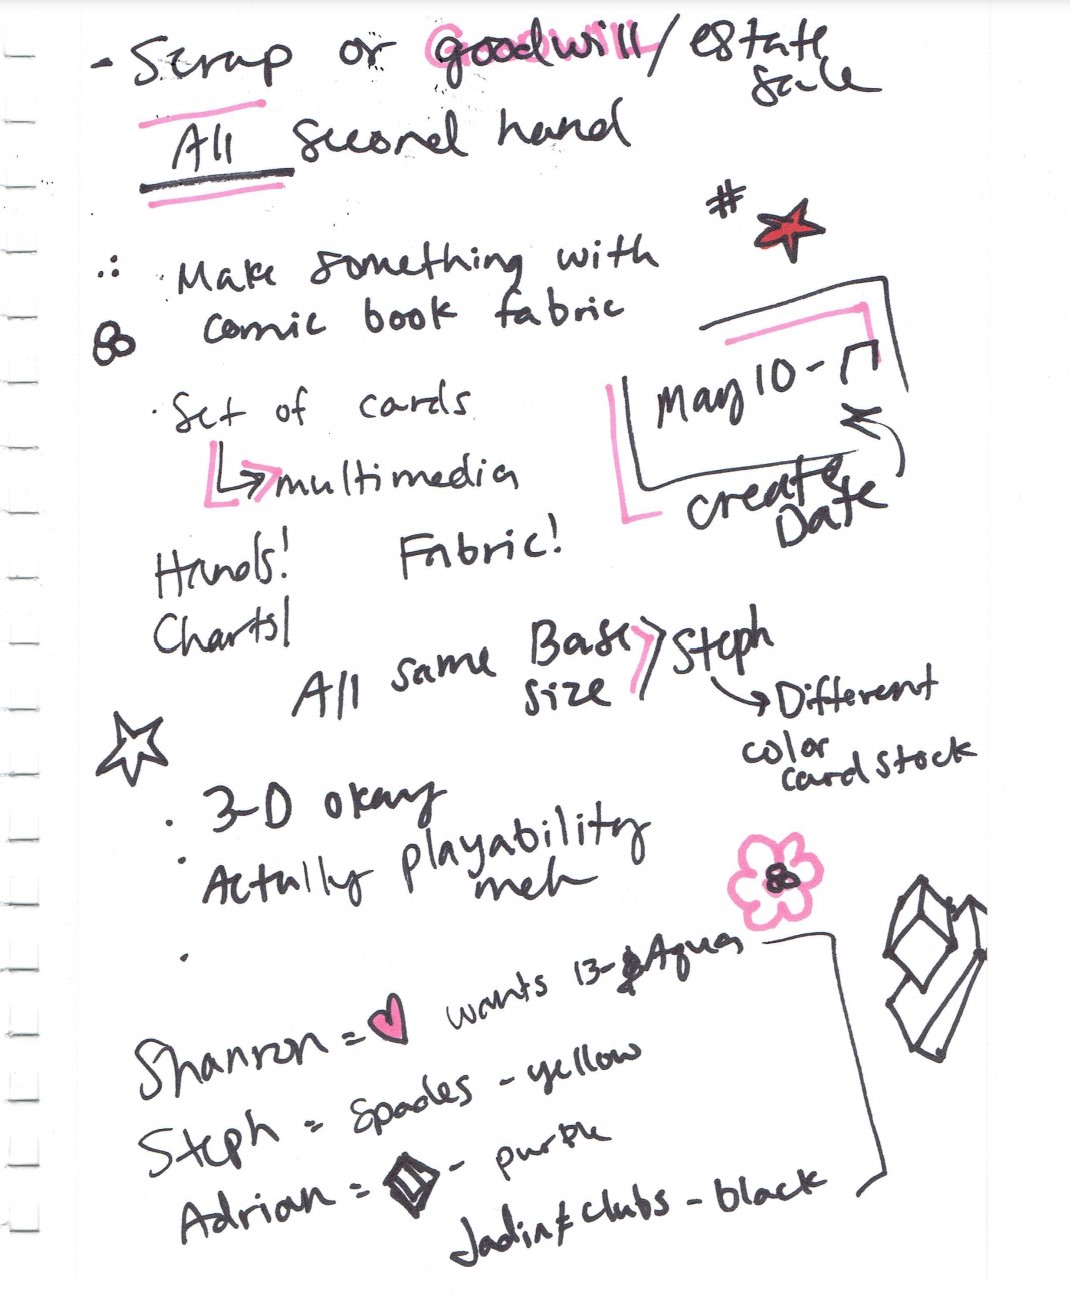 - Scrap or goodwill/estate
sale
All second hand
#
∴ · Make something with
comic book fabric
May 10 -
· Set of cards
↳> multimedia
create
Date
Hands! Fabric!
Charts!
All same Base > Steph
size
→ Different
color
card stock
· 3-D okay
· Actully playability
meh
·
Shannon = ♥ wants 13- Aqua
Steph = Spades - yellow
Adrian = ♦ - purple
clubs - black